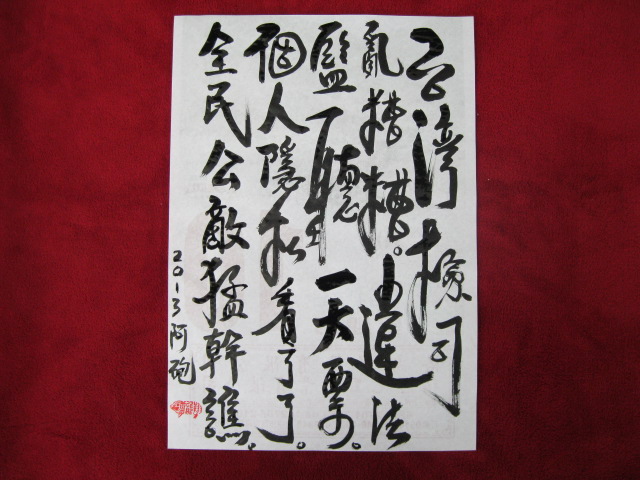 台灣檢司
亂糟糟。違法
監聽一大票。
個人隱私看了了。
全民公敵猛幹譙。
2013阿砲